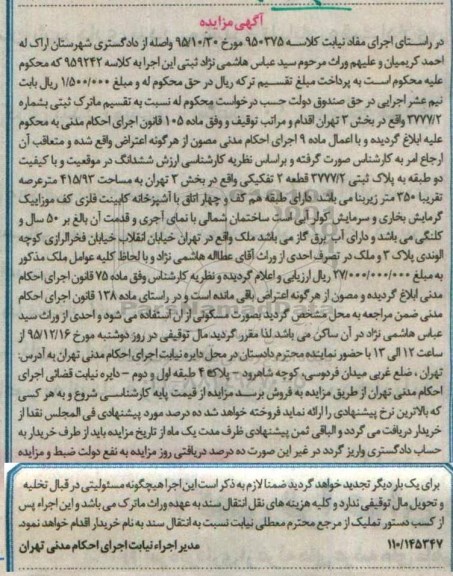 آگهی مزایده
در راستای اجرای مفاد نیابت کلاسه ۹۵۰۳۷۵ مورخ ۹۵/۱۰/۳۰ واصله از دادگستری شهرستان اراک له
احمد کریمیان و علیهم وراث مرحوم سید عباس هاشمی نژاد ثبتی این اجرا به کلاسه ۹۵۹۲۴۲ که محکوم
علیه محکوم است به پرداخت مبلغ تقسیم ترکه ریال در حق محکوم له و مبلغ ۱/۵۰۰/۰۰۰ ریال بابت
نیم عشر اجرایی در حق صندوق دولت حسب درخواست محکوم له نسبت به تقسیم ماترک ثبتی بشماره
۳۷۷۷/۲ واقع در بخش ۳ تهران اقدام و مراتب توقیف و وفق ماده ۱۰۵ قانون اجرای احکام مدنی به محکوم
علیه ابلاغ گردیده و با اعمال ماده ۹ اجرای احکام مدنی مصون از هرگونه اعتراض واقع شده و متعاقب آن
ارجاع امر به کارشناس صورت گرفته و براساس نظریه کارشناسی ارزش ششدانگ در موقعیت و با کیفیت
دو طبقه به پلاک ثبتی ۳۷۷۷/۲ قطعه ۲ تفکیکی واقع در بخش ۳ تهران به مساحت ۴۱۵/۹۳ مترعرصه
تقریبا ۳۵۰ متر زیربنا می باشد دارای طبقه هم کف و چهار اتاق با آشپزخانه کابینت فلزی کف موزاییک
گرمایش بخاری و سرمایش کولر آبی ست ساختمان شمالی با نمای آجری و قدمت آن بالغ بر ۵۰ سال و
کلنگی می باشد و دارای آب برق گاز می باشد ملک واقع در تهران خیابان انقلاب خیابان فخررازی کوچه
الوندی پلاک ۳ و ملک در تصرف احدی از وراث آقای عطااله هاشمی نژاد و با لحاظ کلیه عوامل ملک مذکور
به مبلغ ۳۷/۰۰۰/۰۰۰/۰۰۰ ریال ارزیابی و اعلام گردیده و نظریه کارشناس وفق ماده ۷۵ قانون اجرای احکام
مدنی ابلاغ گردیده و مصون از هرگونه اعتراض باقی مانده است و در راستای ماده ۱۳۸ قانون اجرای احکام
مدنی ضمن مراجعه به محل مشخص گردید بصورت مسکونی از آن استفاده می شود و احدی از وراث سید
عباس هاشمی نژاد در آن ساکن می باشد لذا مقرر گردید مال توقیفی در روز دوشنبه مورخ ۹۵/۱۲/۱۶ از
ساعت ۱۲ الی ۱۳ با حضور نماینده محترم دادستان در محل دایره نیابت اجرای احکام مدنی تهران به آدرس:
تهران ، ضلع غربی میدان فردوسی، کوچه شاهرود - پلاک ۴ طبقه اول و دوم - دایره نیابت قضائی اجرای
احکام مدنی تهران از طریق مزایده به فروش برسد مزایده از قیمت پایه کارشناسی شروع و به هر کسی
که بالاترین نرخ پیشنهادی را ارائه نماید فروخته خواهد شد ده درصد مورد پیشنهادی فی المجلس نقدا از
خریدار دریافت می گردد و الباقی ثمن پیشنهادی ظرف مدت یک ماه از تاریخ مزایده باید از طرف خریدار به
حساب دادگستری واریز گردد در غیر این صورت ده درصد دریافتی روز مزایده به نفع دولت ضبط و مزایده
برای یک بار دیگر تجدید خواهد گردید ضمنا لازم به ذکر است این اجرا هیچگونه مسئولیتی در قبال تخلیه
و تحویل مال توقیفی ندارد و کلیه هزینه های نقل انتقال سند به عهده وراث ماترک می باشد و این اجراء پس
از کسب دستور تملیک از مرجع محترم معطلی نیابت نسبت به انتقال سند به نام خریدار اقدام خواهد نمود.
۱۱۰/۱۴۵۳۴۷ مدیر اجراء نیابت اجرای احکام مدنی تهران